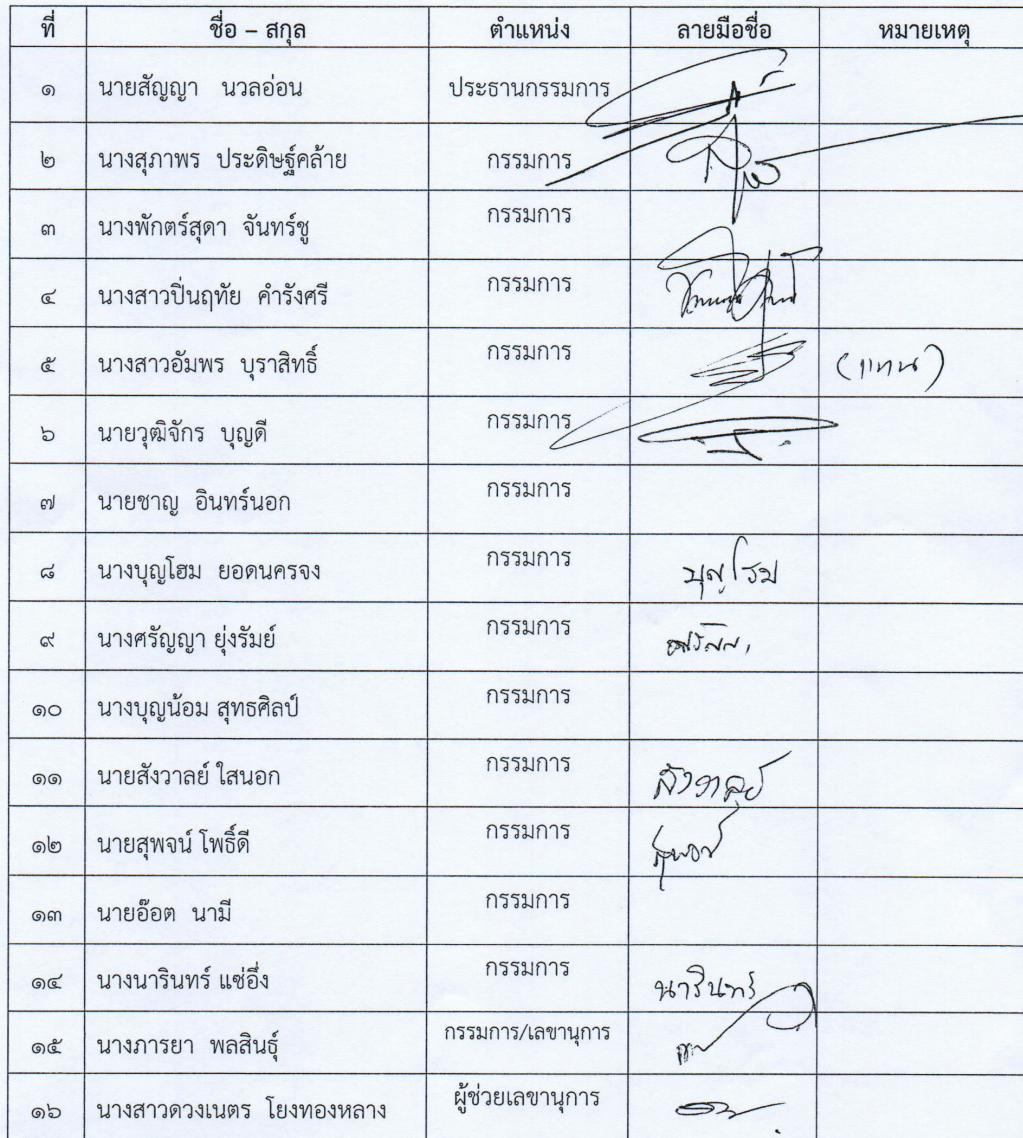 ที่ ชื่อ – สกุล ตำแหน่ง ลายมือชื่อ หมายเหตุ
๑ นายสัญญา นวลอ่อน ประธานกรรมการ
๒ นางสุภาพร ประดิษฐ์คล้าย กรรมการ
๓ นางพักตร์สุดา จันทร์ชู กรรมการ
๔ นางสาวปิ่นฤทัย คำรังศรี กรรมการ
๕ นางสาวอัมพร บุราสิทธิ์ กรรมการ (แทน)
๖ นายวุฒิจักร บุญดี กรรมการ
๗ นายชาญ อินทร์นอก กรรมการ
๘ นางบุญโฮม ยอดนครจง กรรมการ บุญโฮม
๙ นางศรัญญา ยุ่งรัมย์ กรรมการ
๑๐ นางบุญน้อม สุทธศิลป์ กรรมการ
๑๑ นายสังวาลย์ ใสนอก กรรมการ สังวาลย์
๑๒ นายสุพจน์ โพธิ์ดี กรรมการ สุพจน์
๑๓ นายอ๊อต นามี กรรมการ
๑๔ นางนารินทร์ แซ่อึ่ง กรรมการ นารินทร์
๑๕ นางภารยา พลสินธุ์ กรรมการ/เลขานุการ
๑๖ นางสาวดวงเนตร โยงทองหลาง ผู้ช่วยเลขานุการ